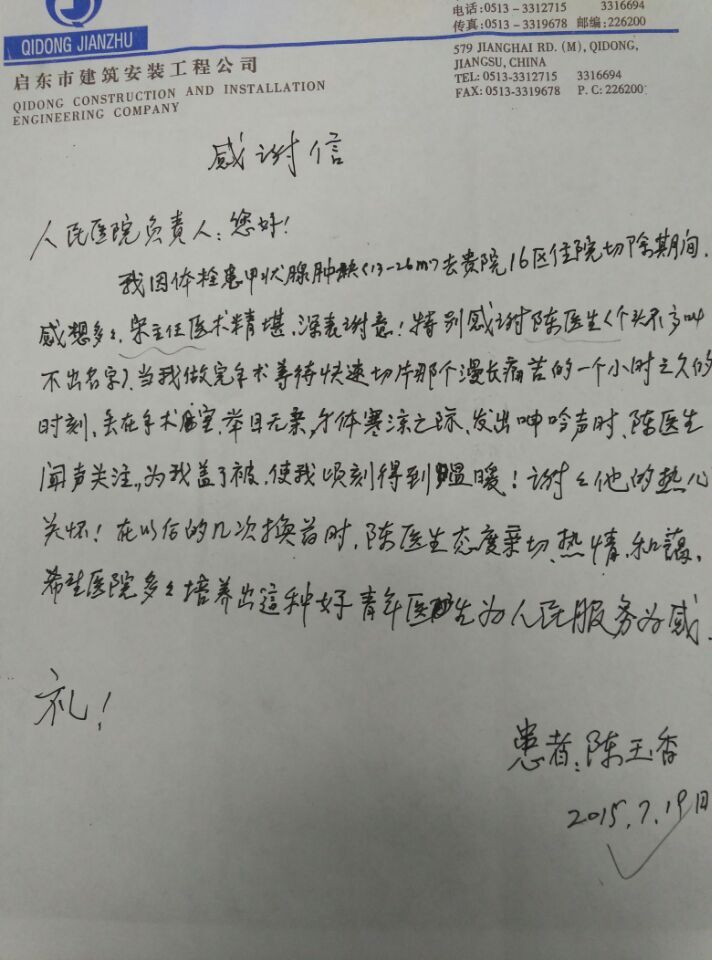 QIDONG JIANZHU
启东市建筑安装工程公司
QIDONG CONSTRUCTION AND INSTALLATION
ENGINEERING COMPANY
电话:0513-3312715 3316694
传真:0513-3319678 邮编:226200
579 JIANGHAI RD. (M), QIDONG,
JIANGSU, CHINA
TEL: 0513-3312715 3316694
FAX: 0513-3319678 P. C: 226200
感谢信
人民医院负责人:您好!
我因体检患甲状腺肿块(13-26m)去贵院16区住院切除期间.
感想多多.宋主任医术精堪.深表谢意!特别感谢陈医生(个头不高叫
不出名字).当我做完手术等待快速切片那个漫长痛苦的一个小时之久的
时刻.丢在手术室.举目无亲,身体寒凉之际.发出呻吟声时.陈医生
闻声关注,为我盖了被.使我顷刻得到温暖!谢谢他的热心
关怀!在以后的几次换药时.陈医生态度亲切.热情.和蔼.
希望医院多多培养出這种好青年医生为人民服务为感.
礼!
患者:陈玉香
2015.7.19日